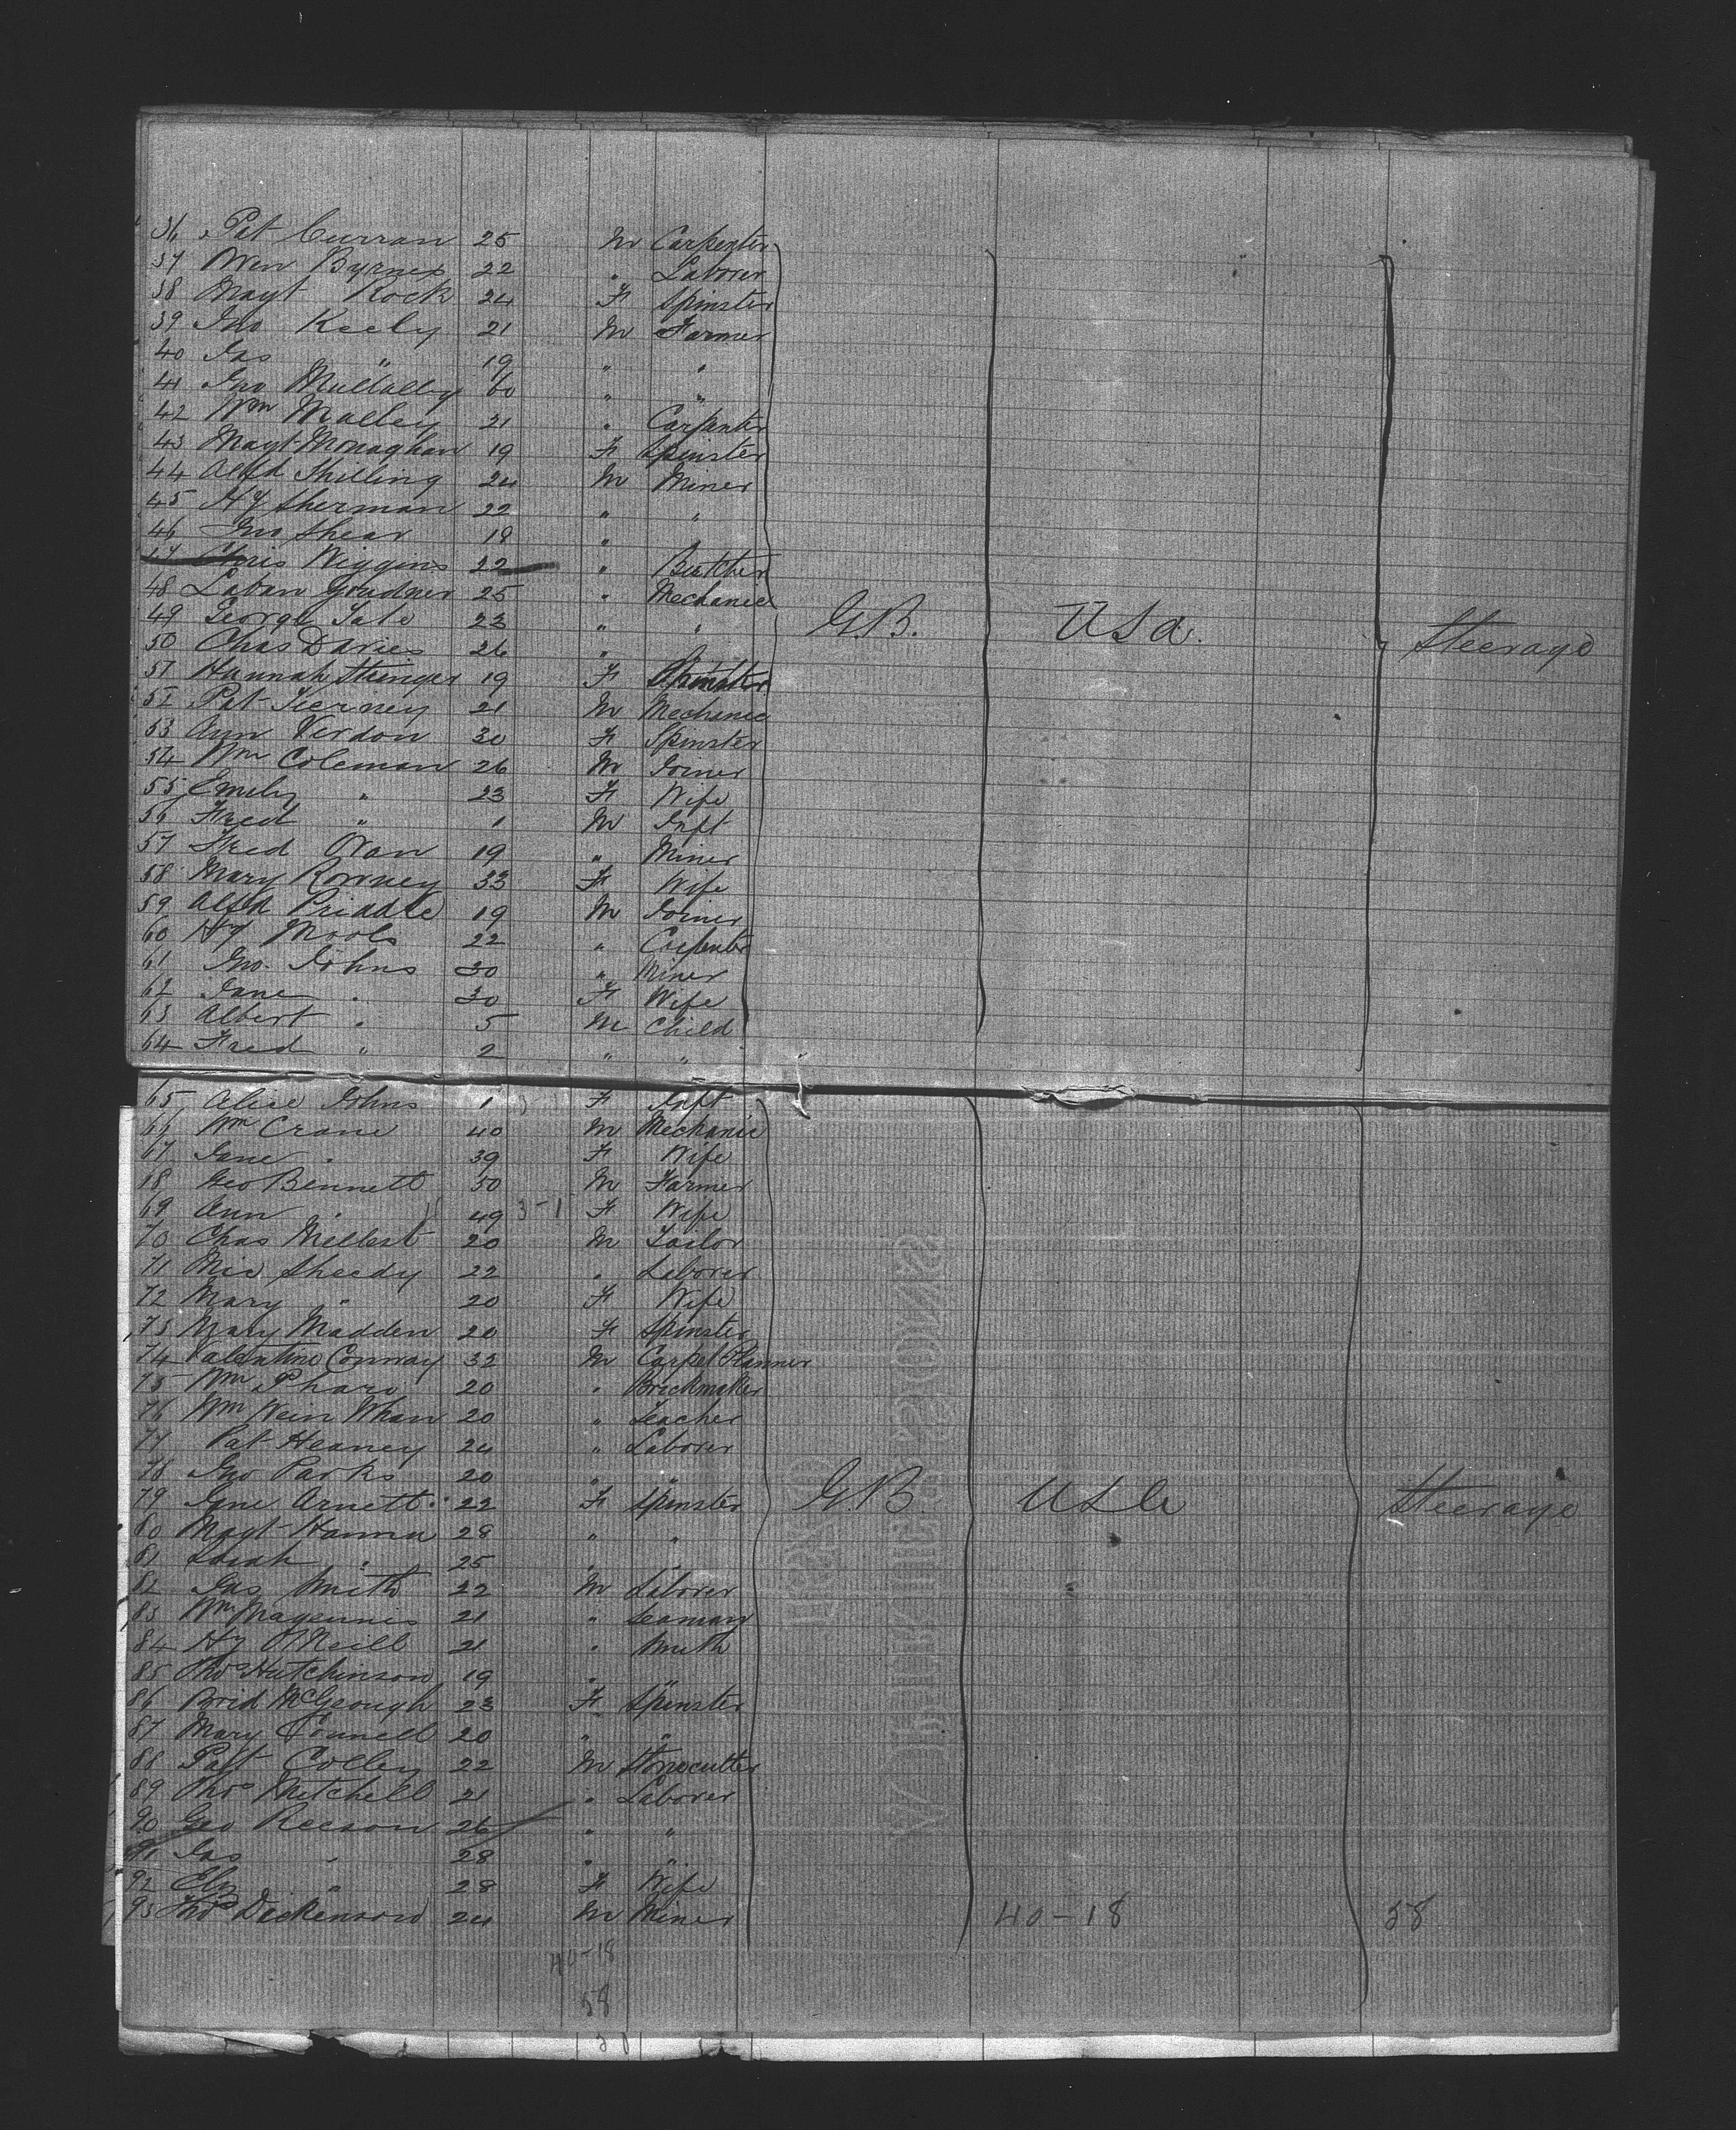 36 Pat Curran 25 M Carpenter
37 Owen Byrnes 22 " Laborer
38 Magt Rock 24 F Spinster
39 Jno Keely 21 M Farmer
40 Jas " 19 " "
41 Jno Mullally 60 " "
42 Wm Malley 21 " Carpenter
43 Magt Monaghan 19 F Spinster
44 Alfd Skilling 24 M Miner
45 Hy Sherman 22 " "
46 Jno Shear 18 " "
47 Chris Wiggins 22 " Butcher
48 Laban Grudner 25 " Mechanic
49 George Tate 23 " " G.B. USA. Steerage
50 Chas Davies 26 " "
51 Hannah Stringer 19 F Spinster
52 Pat Tierney 21 M Mechanic
53 Ann Verdon 30 F Spinster
54 Wm Coleman 26 M Joiner
55 Emily " 23 F Wife
56 Fred " 1 M Inft
57 Fred Oran 19 " Miner
58 Mary Rowney 33 F Wife
59 Alfd Priddle 19 M Joiner
60 Hy Mools 22 " Carpenter
61 Jno. Johns 30 " Miner
62 Jane " 30 F Wife
63 Albert " 5 M Child
64 Fred " 2 " "
65 Alice Johns 1 F Inft
66 Wm Crane 40 M Mechanic
67 Jane " 39 F Wife
68 Geo Bennett 50 M Farmer
69 Ann " 49 3-1 F Wife
70 Chas Milbert 20 M Tailor
71 Mic Sheedy 22 " Laborer
72 Mary " 20 F Wife
73 Mary Madden 20 F Spinster
74 Valentine Conway 32 M Carpet Planner
75 Wm Pharo 20 " Brickmaker
76 Wm Wein Whan 20 " Teacher
77 Pat Heaney 24 " Laborer
78 Jno Parks 20 " "
79 Jane Arnett 22 F Spinster G.B. USA Steerage
80 Magt Hanna 28 " "
81 Sarah " 25 " "
82 Jas Smith 22 M Laborer
83 Wm Magennis 21 " Seaman
84 Hy O'Neill 21 " Smith
85 Thos Hutchinson 19 " "
86 Brid McGeough 23 F Spinster
87 Mary Connell 20 " "
88 Patt Colley 22 M Stonecutter
89 Thos Mitchell 21 " Laborer
90 Geo Reeson 26 " "
91 Jas " 28 " "
92 Elz " 28 F Wife
93 Thos Dickenson 24 M Miner 40-18 58
40-18
58